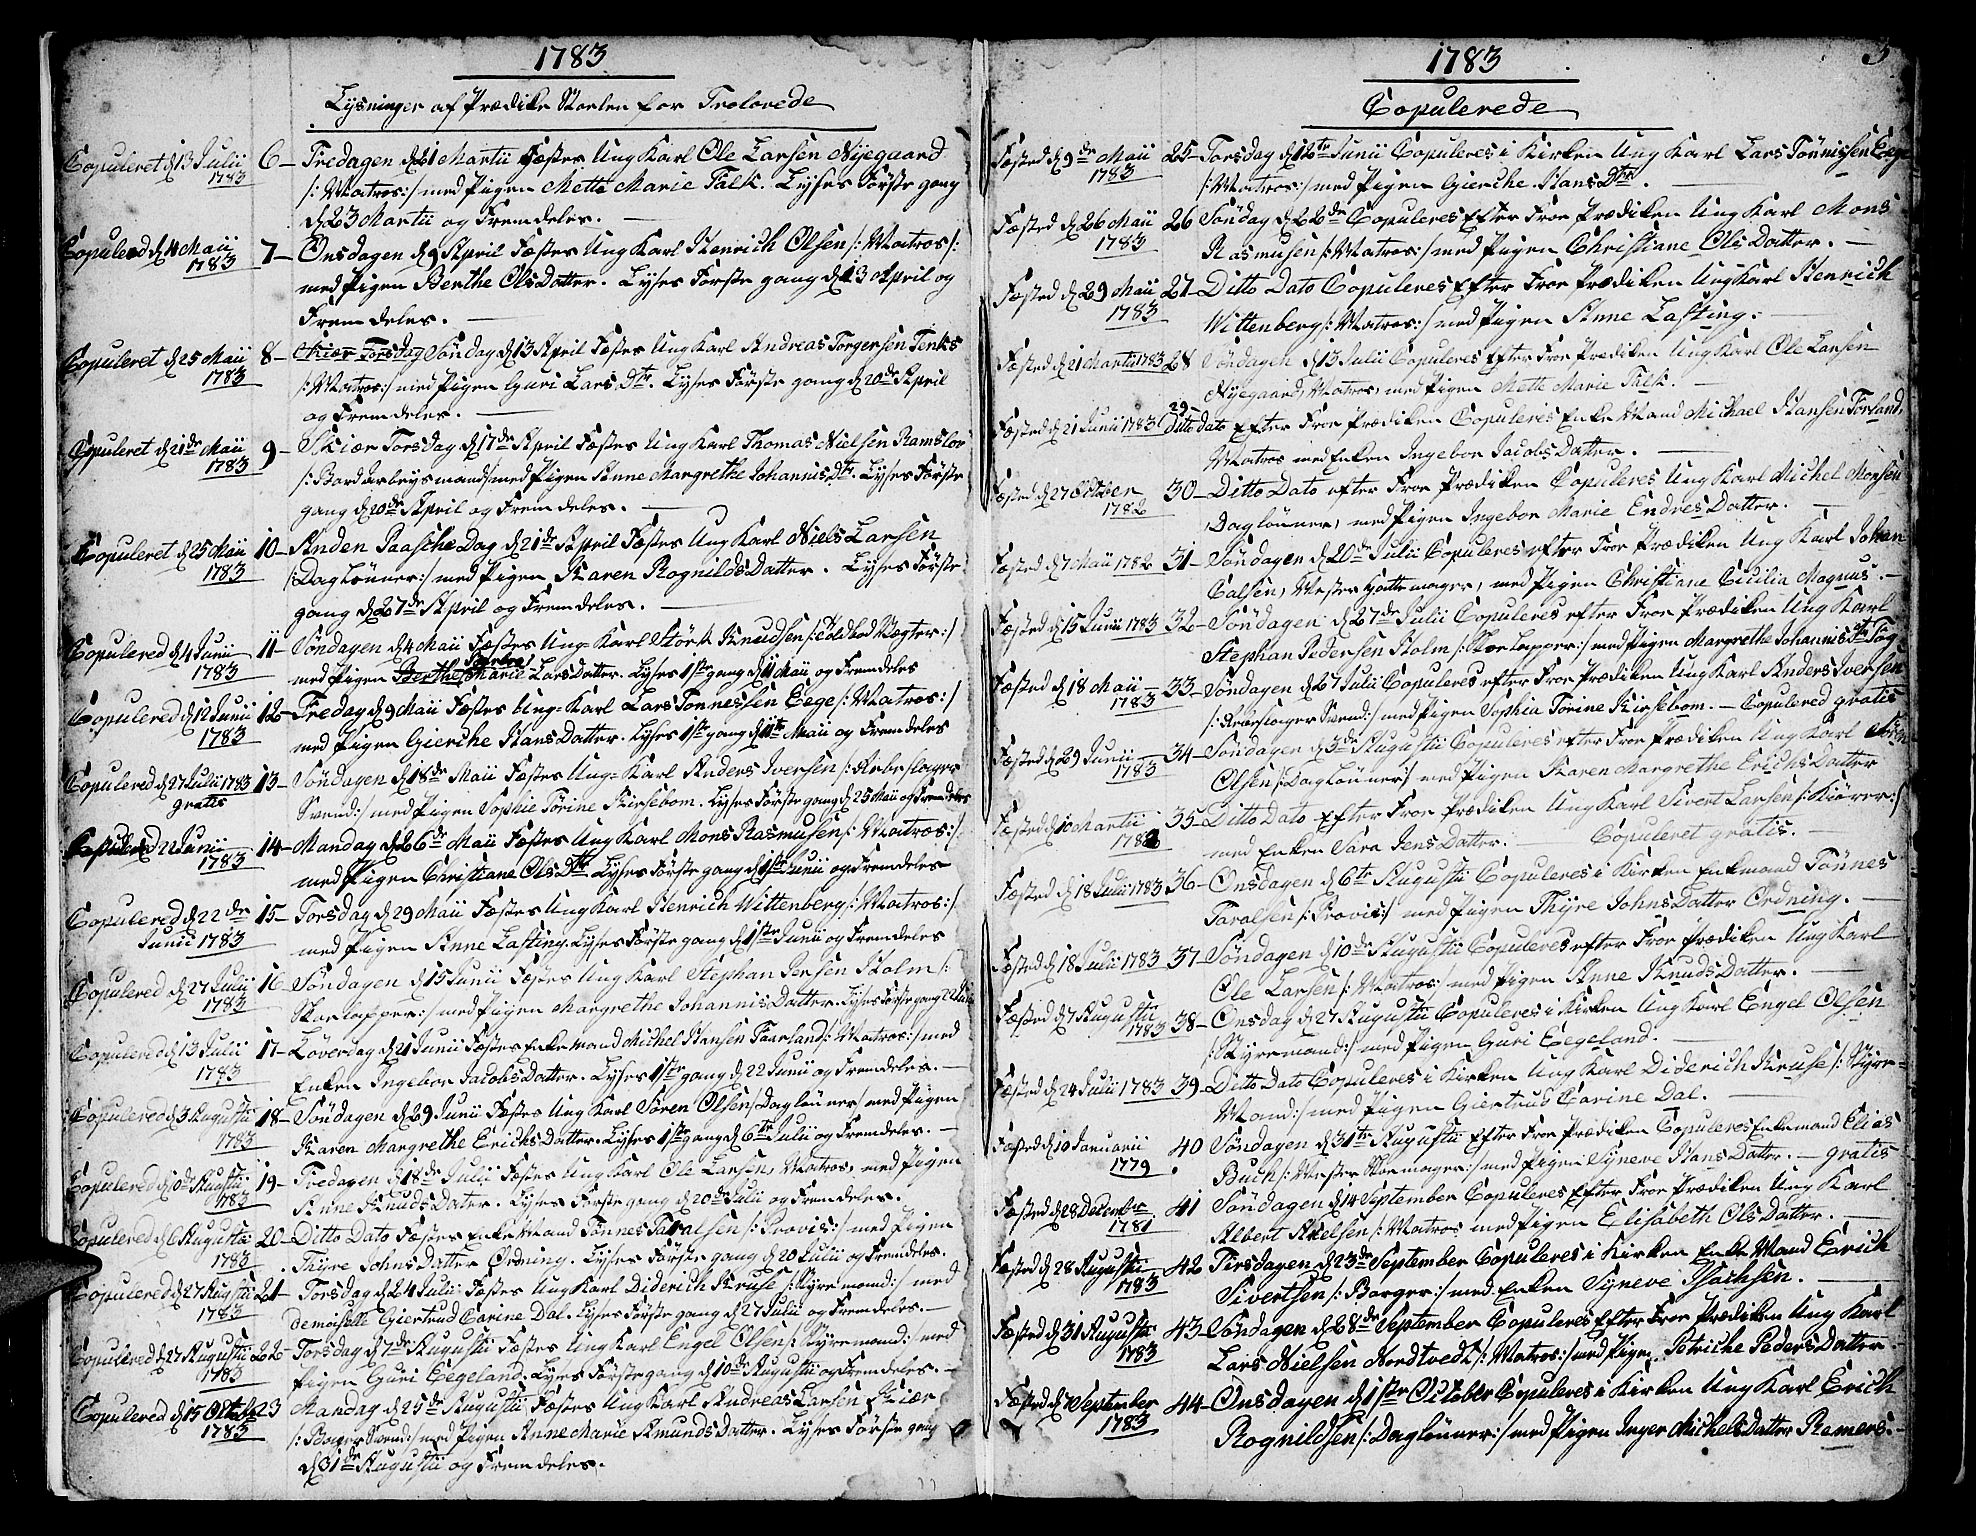 1783
Lysninger af Prædike Stoelen for Trolovede
Copuleret d 13 Julii 1783
6 - Fredagen d 21 Martii Fæstes Ung Karl Ole Larsen Nyegaard
/: Matros :/ med Pigen Mette Marie Falk. Lyses Første gang
d 23 Martii og Fremdeles.
Copulered d 4 Maii 1783
7 - Onsdagen d 9 April Fæstes Ung Karl Henrich Olsen /: Matros :/
med Pigen Berthe Ols Datter. Lyses Første gang d 13 April og
Fremdeles.
Copuleret d 25 Maii 1783
8 - Skier Torsdag Søndag d 13 April Fæstes Ung Karl Andreas Torgersen Tenks
/: Matros :/ med Pigen Guri Lars Dtr. Lyses Første gang d 20de April
og Fremdeles.
Copuleret d 21de Maii 1783
9 - Skiær Torsdag d 17de April Fæstes Ung Karl Thomas Nielsen Ramslov
/: Bord Arbeysmand / med Pigen Anne Margrethe Johannis Dtr. Lyses Første
gang d 20de April og Fremdeles.
Copuleret d 25 Maii 1783
10 - Anden Paasche Dag d 21de April Fæstes Ung Karl Niels Larsen
/: Daglønner :/ med Pigen Karen Rognilds Datter. Lyses Første
gang d 27de April og Fremdeles.
Copulered d 4 Junii 1783
11 - Søndagen d 4 Maii Fæstes Ung Karl Størk Knudsen /: Toldbod Vægter :/
Barbra
med Pigen Berthe Marie Lars Datter. Lyses 1ste gang d 11 Maii og Fremdeles
Copulered d 12 Junii 1783
12 - Fredag d 9 Maii Fæstes Ung = Karl Lars Tønnessen Eege /: Matros :/
med Pigen Gierche Hans Datter. Lyses 1ste gang d 11te Maii og Fremdeles
Copulered d 27 Julii 1783
gratis
13 - Søndagen d 18de Maii Fæstes Ung = Karl Anders Iversen /: Rebslager
Svend :/ med Pigen Sophie Torine Kirsebom. Lyses Første gang d 25 Maii og Fremdeles
Copulered 22 Junii 1783
14 - Mandag d 26de Maii Fæstes Ung Karl Mons Rasmusen /: Matros :/
med Pigen Christiane Ols Dtr Lyses Første gang d 1ste Junii og Fremdeles
Copulered d 22de Junii 1783
15 - Torsdag d 29 Maii Fæstes Ung Karl Henrich Wittenberg /: Matros :/
med Pigen Anne Lasting. Lyses Første gang d 1ste Junii og Fremdeles
Copulered d 27 Julii 1783
16 Søndagen d 15 Junii Fæstes Ung Karl Stephan Persen Holm /:
Skoelapper :/ med Pigen Margrethe Johannis Datter. Lyses Første gang 22 Junii
Copulered d 13 Julii 1783
17 - Løverdag d 21 Junii Fæstes Enke Mand Michel Hansen Faarland /: Matros :/ med
Enken Ingebor Jacobs Datter. Lyses 1ste gang d 22 Junii og Fremdeles.
Copulered d 3 Augustii 1783
18 - Søndagen d 29 Junii Fæstes Ung Karl Søren Olsen / Daglønner / med Pigen
Karen Margrethe Erichs Datter. Lyses 1ste gang d 6te Julii og Fremdeles.
Copulered d 10de Augustii 1783
19 - Fredagen d 18de Julii Fæstes Ung Karl Ole Larsen, Matros, med Pigen
Anne Knuds Datter. Lyses Første gang d 20de Julii og Fremdeles.
Copulered d 6 Augustii 1783
20 - Ditto Dato Fæstes Enke Mand Tønnes Taralsen /: Provis :/ med Pigen
Thÿre Johns Datter Ordning. Lyses Første gang d 20 Julii og Fremdeles.
Copulered d 27 Augustii 1783
21 - Torsdag d 24 Julii Fæstes Ung Karl Diderich Kruse /: Styremand :/ med
demoiselle Giertrud Carine Dal. Lyses Første gang d 27 Julii og Fremdeles.
Copulered d 27 Augustii 1783
22 - Torsdag d 7de Augustii Fæstes Ung Karl Engel Olsen /: Styremand :/ med
Pigen Guri Eegeland. Lyses Første gang d 10de Augustii og Fremdeles.
Copulered d 15 October 1783
23 Mandag d 25de Augustii Fæstes Ung Karl Andreas Larsen Kiær
/: Svend :/ med Pigen Anne Marie Amunds Datter. Lyses Første gang
d 31de Augustii og Fremdeles.
1783
3
Copulerede
Fæsted d 9de Maii 1783
25 - Torsdag d 12te Junii Copuleres i Kirken Ung Karl Lars Tønnissen Eege
/: Matros :/ med Pigen Gierche Hans Dtr.
Fæsted d 26 Maii 1783
26 Søndag d 22de Copuleres Efter Froe Prædiken Ung Karl Mons
Rasmusen /: Matros :/ med Pigen Christiane Ols Datter.
Fæsted d 29 Maii 1783
27 - Ditto Dato Copuleres Efter Froe Prædiken Ung Karl Henrich
Wittenberg /: Matros :/ med Pigen Anne Lasting.
Fæsted d 21 Martii 1783
28 Søndagen d 13 Julii Copuleres Efter Froe Prædiken Ung Karl Ole Larsen
Nyegaard, Matros, med Pigen Mette Marie Falk.
Fæsted d 21 Junii 1783
29 - Ditto Dato Efter Froe Prædiken Copuleris Enke Mand Michael Hansen Forland,
Matros med Enken Ingebor Jacobs Datter.
Fæsted d 27 October 1782
30 - Ditto Dato efter Froe Prædiken Copuleres Ung Karl Michel Monsen
, Daglønner, med Pigen Ingebor Marie Endres Datter.
Fæsted d 7 Maii 1782
31 - Søndagen d 20de Julii Copuleres efter Froe Prædiken Ung Karl Johan
Calsen, Mester Hattemager, med Pigen Christiane Cicilia Magnus.
Fæsted d 15 Junii 1783
32 - Søndagen d 27de Julii Copuleres efter Froe Prædiken Ung Karl
Stephan Pedersen Holm /: Skoelapper :/ med Pigen Margrethe Johannis Dtr Tøg
Fæsted d 18 Maii 1783
33 - Søndagen d 27 Julii Copuleres efter Froe Prædiken Ung Karl Anders Iversen
/: Rebslager Svend :/ med Pigen Sophia Torine Kirsebom. - Copulered gratis
Fæsted d 29 Junii 1783
34 - Søndagen d 3de Augustii Copuleres efter Froe Prædiken Ung Karl Søren
Olsen /: Daglønner :/ med Pigen Karen Margrethe Erichs Datter
Fæsted d 10 Martii 1782
35 - Ditto Dato Efter Froe Prædiken Copuleres Ung Karl Sivert Larsen /: Kiører :/
med Enken Sara Jens Datter. Copuleret gratis.
Fæsted d 18 Julii 1783
36 - Onsdagen d 6te Augustii Copuleres i Kirken Enkemand Tønnes
Taralsen /: Provis :/ med Pigen Thÿre Johns Datter Ordning.
Fæsted d 18 Julii 1783
37 - Søndagen d 10de Augustii Copuleres efter Froe Prædiken Ung Karl
Ole Larsen /: Matros :/ med Pigen Anne Knuds Datter.
Fæsted d 7 Augustii 1783
38 - Onsdag d 27 Augustii Copuleres i Kirken Ung Karl Engel Olsen
/: Styremand :/ med Pigen Guri Eegeland.
Fæsted d 24 Julii 1783
39 - Ditto Dato Copuleres i Kirken Ung Karl Diderich Kruse /: Styre-
Mand :/ med Pigen Giertrus Carine Dal.
Fæsted d 10 Januarii 1779
40 Søndagen d 31te Augustii Efter Froe Prædiken Copuleres Enkemand Elias
Buch /: Mester Skoemager :/ med Pigen Syneve Hans Datter. - gratis
Fæsted d 28 December 1781
41 Søndagen d 14 September Copuleres Efter Froe Prædiken Ung Karl
Albert Axelsen /: Matros med Pigen Elisabeth Ols Datter.
Fæsted d 28 Augustii 1783
42 Tirsdagen d 23de September Copuleres i Kirken Enke Mand Erich
Sivertsen /: Borger :/ med Enken Syneve Isachsen.
Fæsted d 31 Augustii 1783
43 - Søndagen d 28de September Copuleres Efter Froe Prædiken Ung Karl
Lars Nielsen Nordtvedt /: Matros :/ med Pigen Petriche Peders Datter
Fæsted d 7 September 1783
44 - Onsdagen d 1ste October Copuleres i Kirken Ung Karl Erich
Rognildsen /: Daglønner :/ med Pigen Inger Michels Datter Remers.